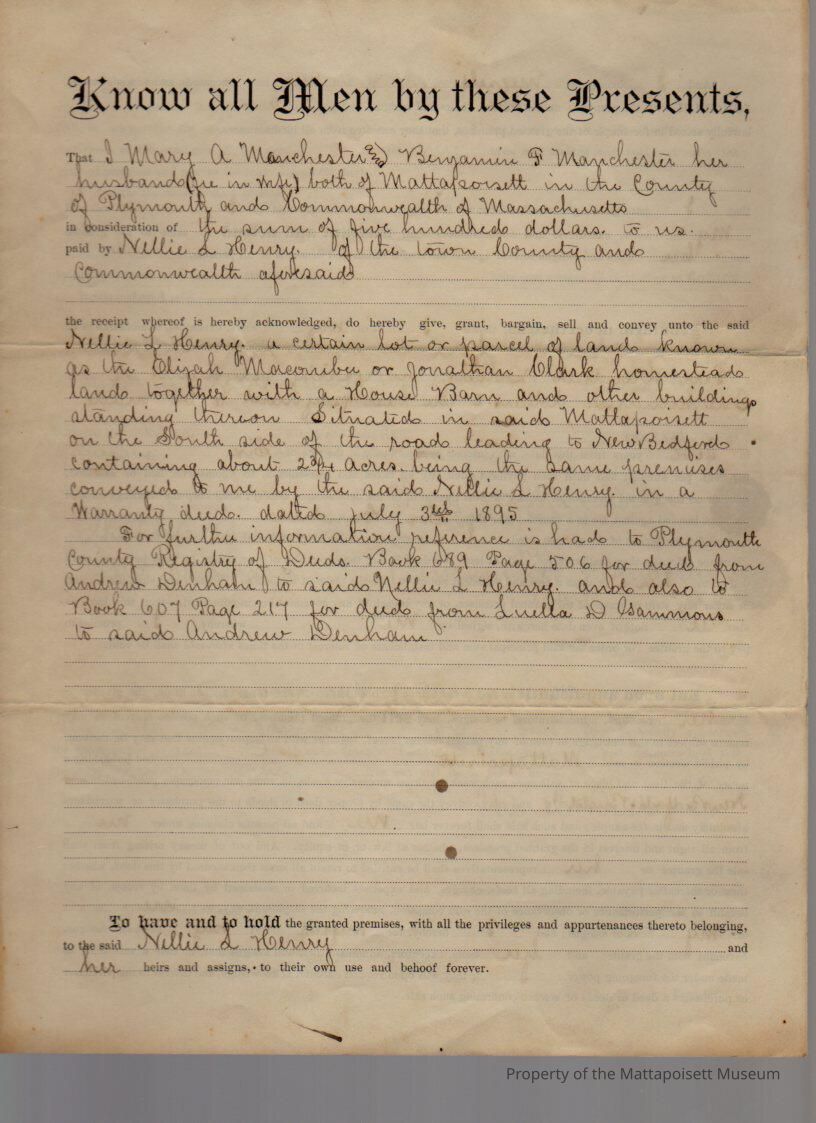 Know all Men by these Presents,
That I Mary A Manchester and Benjamin F Manchester her
husband (he in wife) both of Mattapoisett in the County
of Plymouth and Commonwealth of Massachusetts
in consideration of the sum of five hundred dollars. to us.
paid by Nellie L Henry. of the town County and
Commonwealth aforesaid
the receipt whereof is hereby acknowledged, do hereby give, grant, bargain, sell and convey unto the said
Nellie L Henry. a certain lot or parcel of land known
as the Elijah Macomber or Jonathan Clark homestead
land together with a House Barn and other buildings
standing thereon Situated in said Mattapoisett
on the South side of the road leading to New Bedford
containing about 2 3/4 acres. being the same premises
conveyed to me by the said Nellie L Henry. in a
Warranty deed. dated july 3rd 1895
For further information reference is had to Plymouth
County Registry of Deeds. Book 689 Page 506 for deed from
Andrew Denham to said Nellie L Henry. and also to
Book 607 Page 217 for deed from Luella D Gammons
to said Andrew Denham
To have and to hold the granted premises, with all the privileges and appurtenances thereto belonging,
to the said Nellie L Henry and
her heirs and assigns, to their own use and behoof forever.
Property of the Mattapoisett Museum